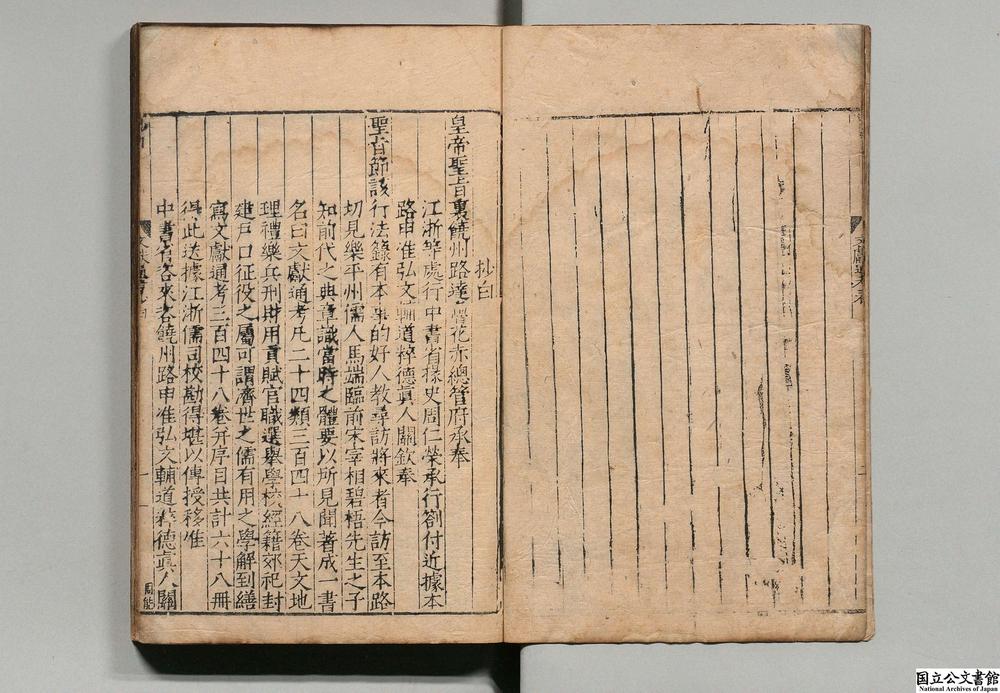 抄白
皇帝聖旨裏饒州路達魯花赤總管府承奉
江浙等處行中書省掾史周仁榮承行劄付近據本
路申准弘文輔道粹德眞人關欽奉
聖旨節該
行法籙有本事的好人敎尋訪將來者今訪至本路
切見樂平州儒人馬端臨前宋宰相碧梧先生之子
知前代之典章識當時之體要以所見聞著成一書
名曰文獻通考凡二十四類三百四十八卷天文地
理禮樂兵刑財用貢賦官職選舉學校經籍郊祀封
建戶口征役之屬可謂濟世之儒有用之學解到繕
寫文獻通考三百四十八卷幷序目共計六十八冊
得此送據江浙儒司校勘得堪以傳授移准
中書省咨來咨饒州路申准弘文輔道粹德眞人關
国立公文書館
National Archives of Japan